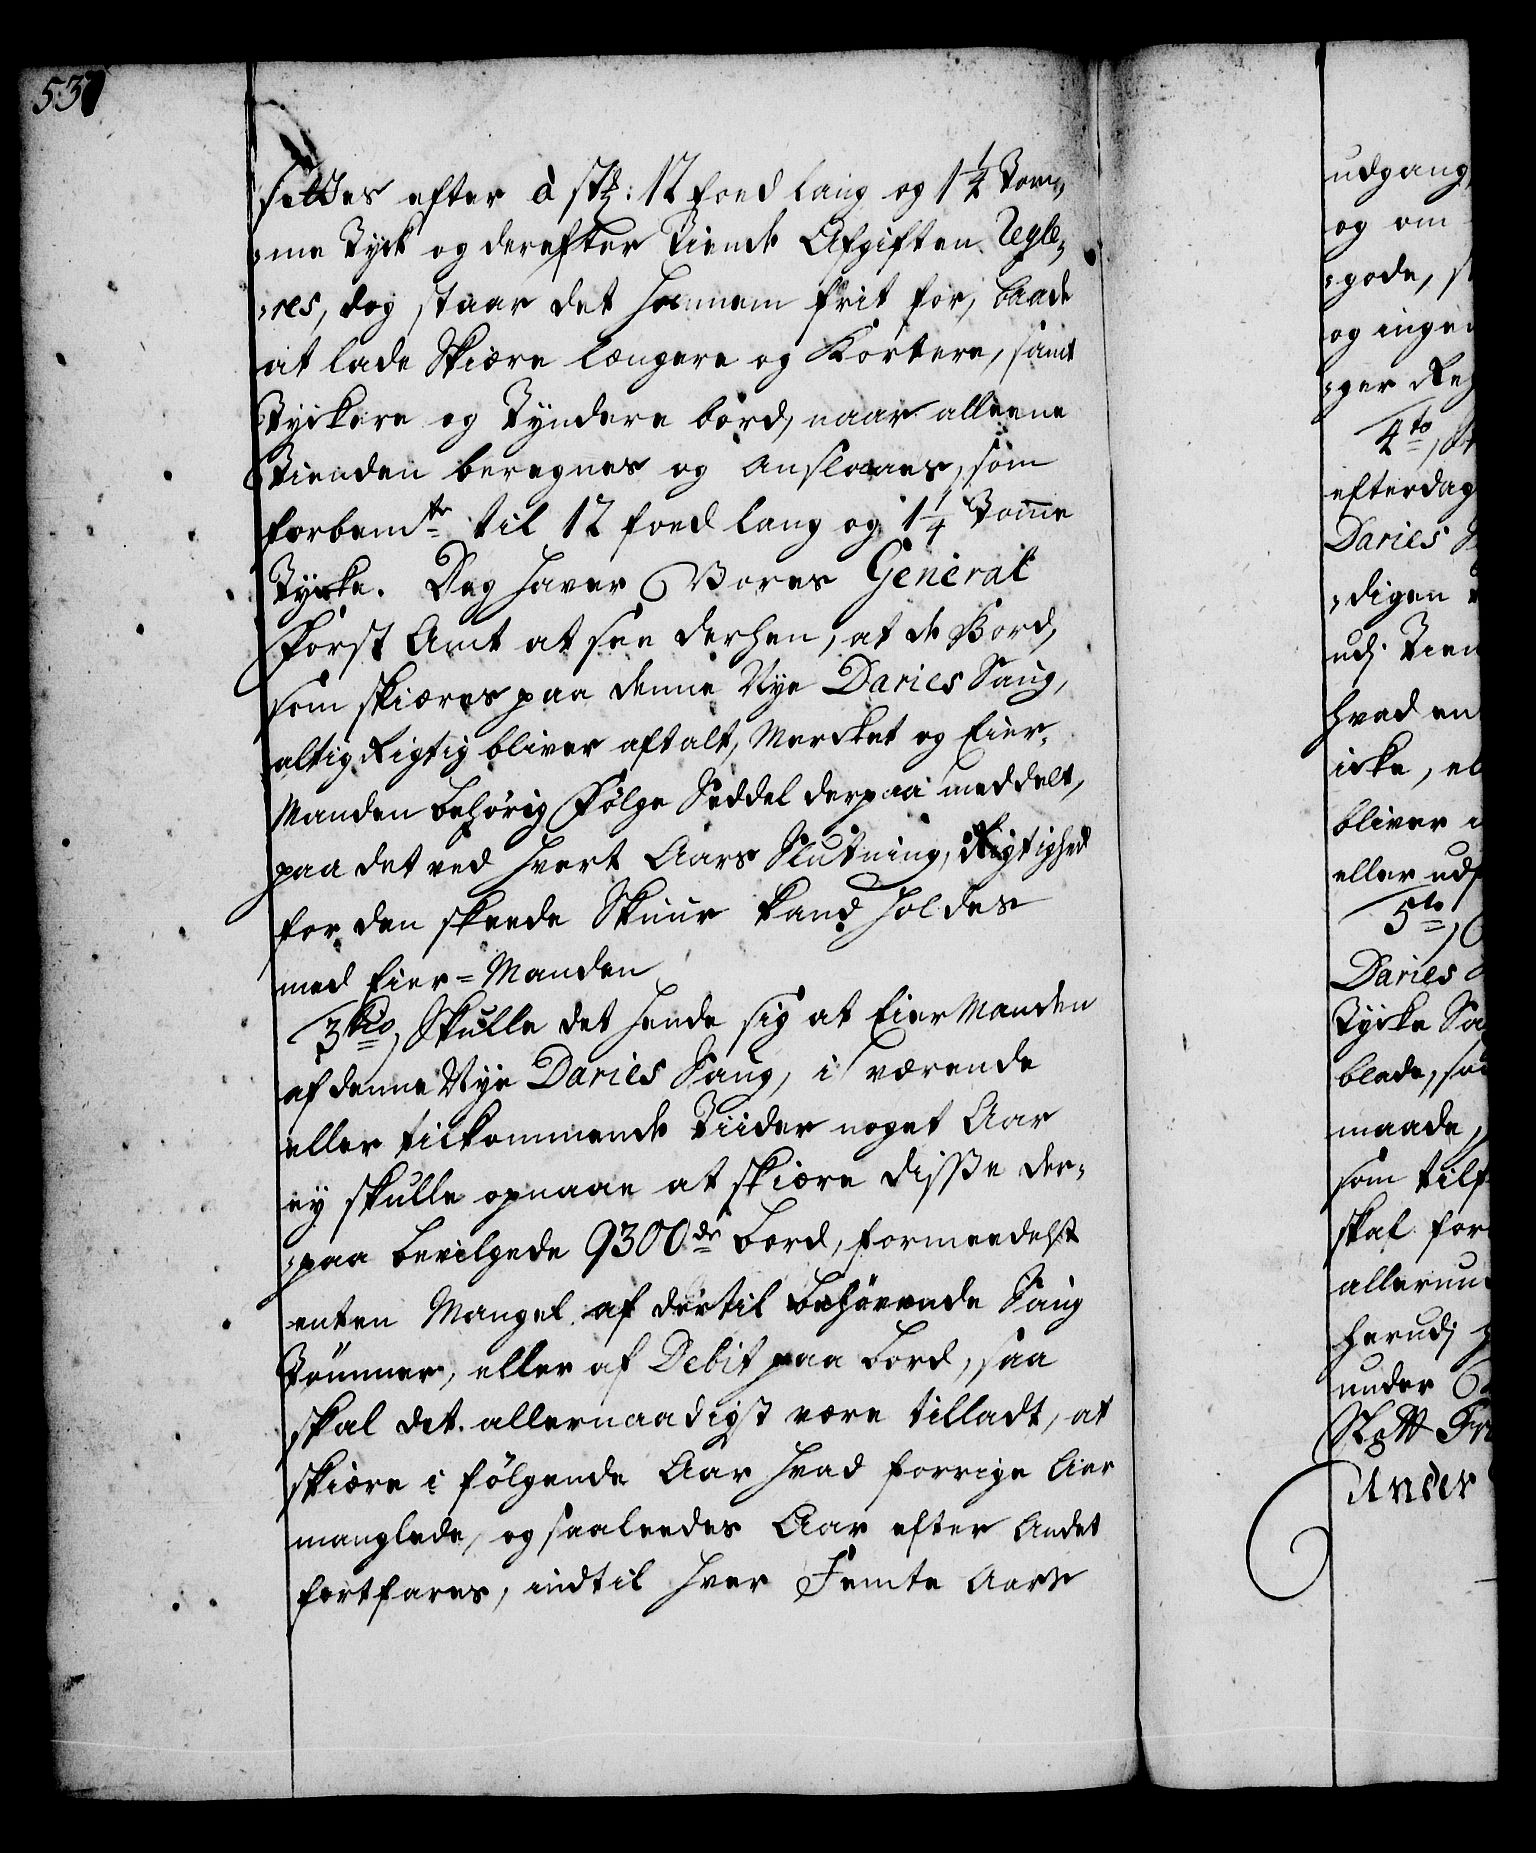 537
settes efter à stk: 12 foed lang og 1 1/4 Tom,
,me Tyck og derefter Tiende Afgiften Regle,
,res, dog staar det hannem frit for, baade
at lade Skiære længere og Kortere, samt
Tyckere og Tyndere bord, naar alleene
Tienden beregnes og anslaaes, som
forbemte til 12 foed lang og 1 1/4 Tomme
Tycke. Dog haver Vores General
Forst Amt at see derhen, at de Bord,
som skiæres paa denne Nye Daries Saug,
altig Rigtig bliver aftalt, Mercket og Eier-
Manden behörig Fölge Seddel derpaa meddelt,
paa det ved hvert Aars Slutning, Rigtighed
for den skeede Skuur kand holdes
med Eier=Manden
3tio, Skulle det hende sig at Eier Manden
af denne Nye Daries Saug, i værende
eller tilkommende Tiider noget Aar
ey skulle opnaae at skiære disse der,
,paa bevilgede 9300de bord, formeedelst
enten Mangel af dertil behövende Saug
Tömmer, eller af Debit paa bord, saa
skal det allernaadigst være tilladt, at
skiære i fölgende Aar hvad forrige Aar
manglede, og saaleedes Aar efter Andet
fortfares, indtil hver Femte Aars
udgang,
og om
,gode,
og ingen
,ger
4to,
efterdag
Daries
,digen
udj Tien
hvad en
icke,
bliver
eller
5to,
Daries
Tycke
blade,
maade,
som
skal for
allerun
herudj
under
Slott
Under